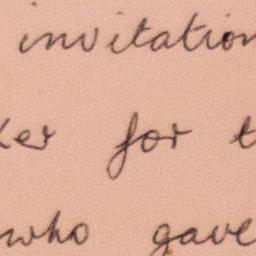 invitation
for
who gave